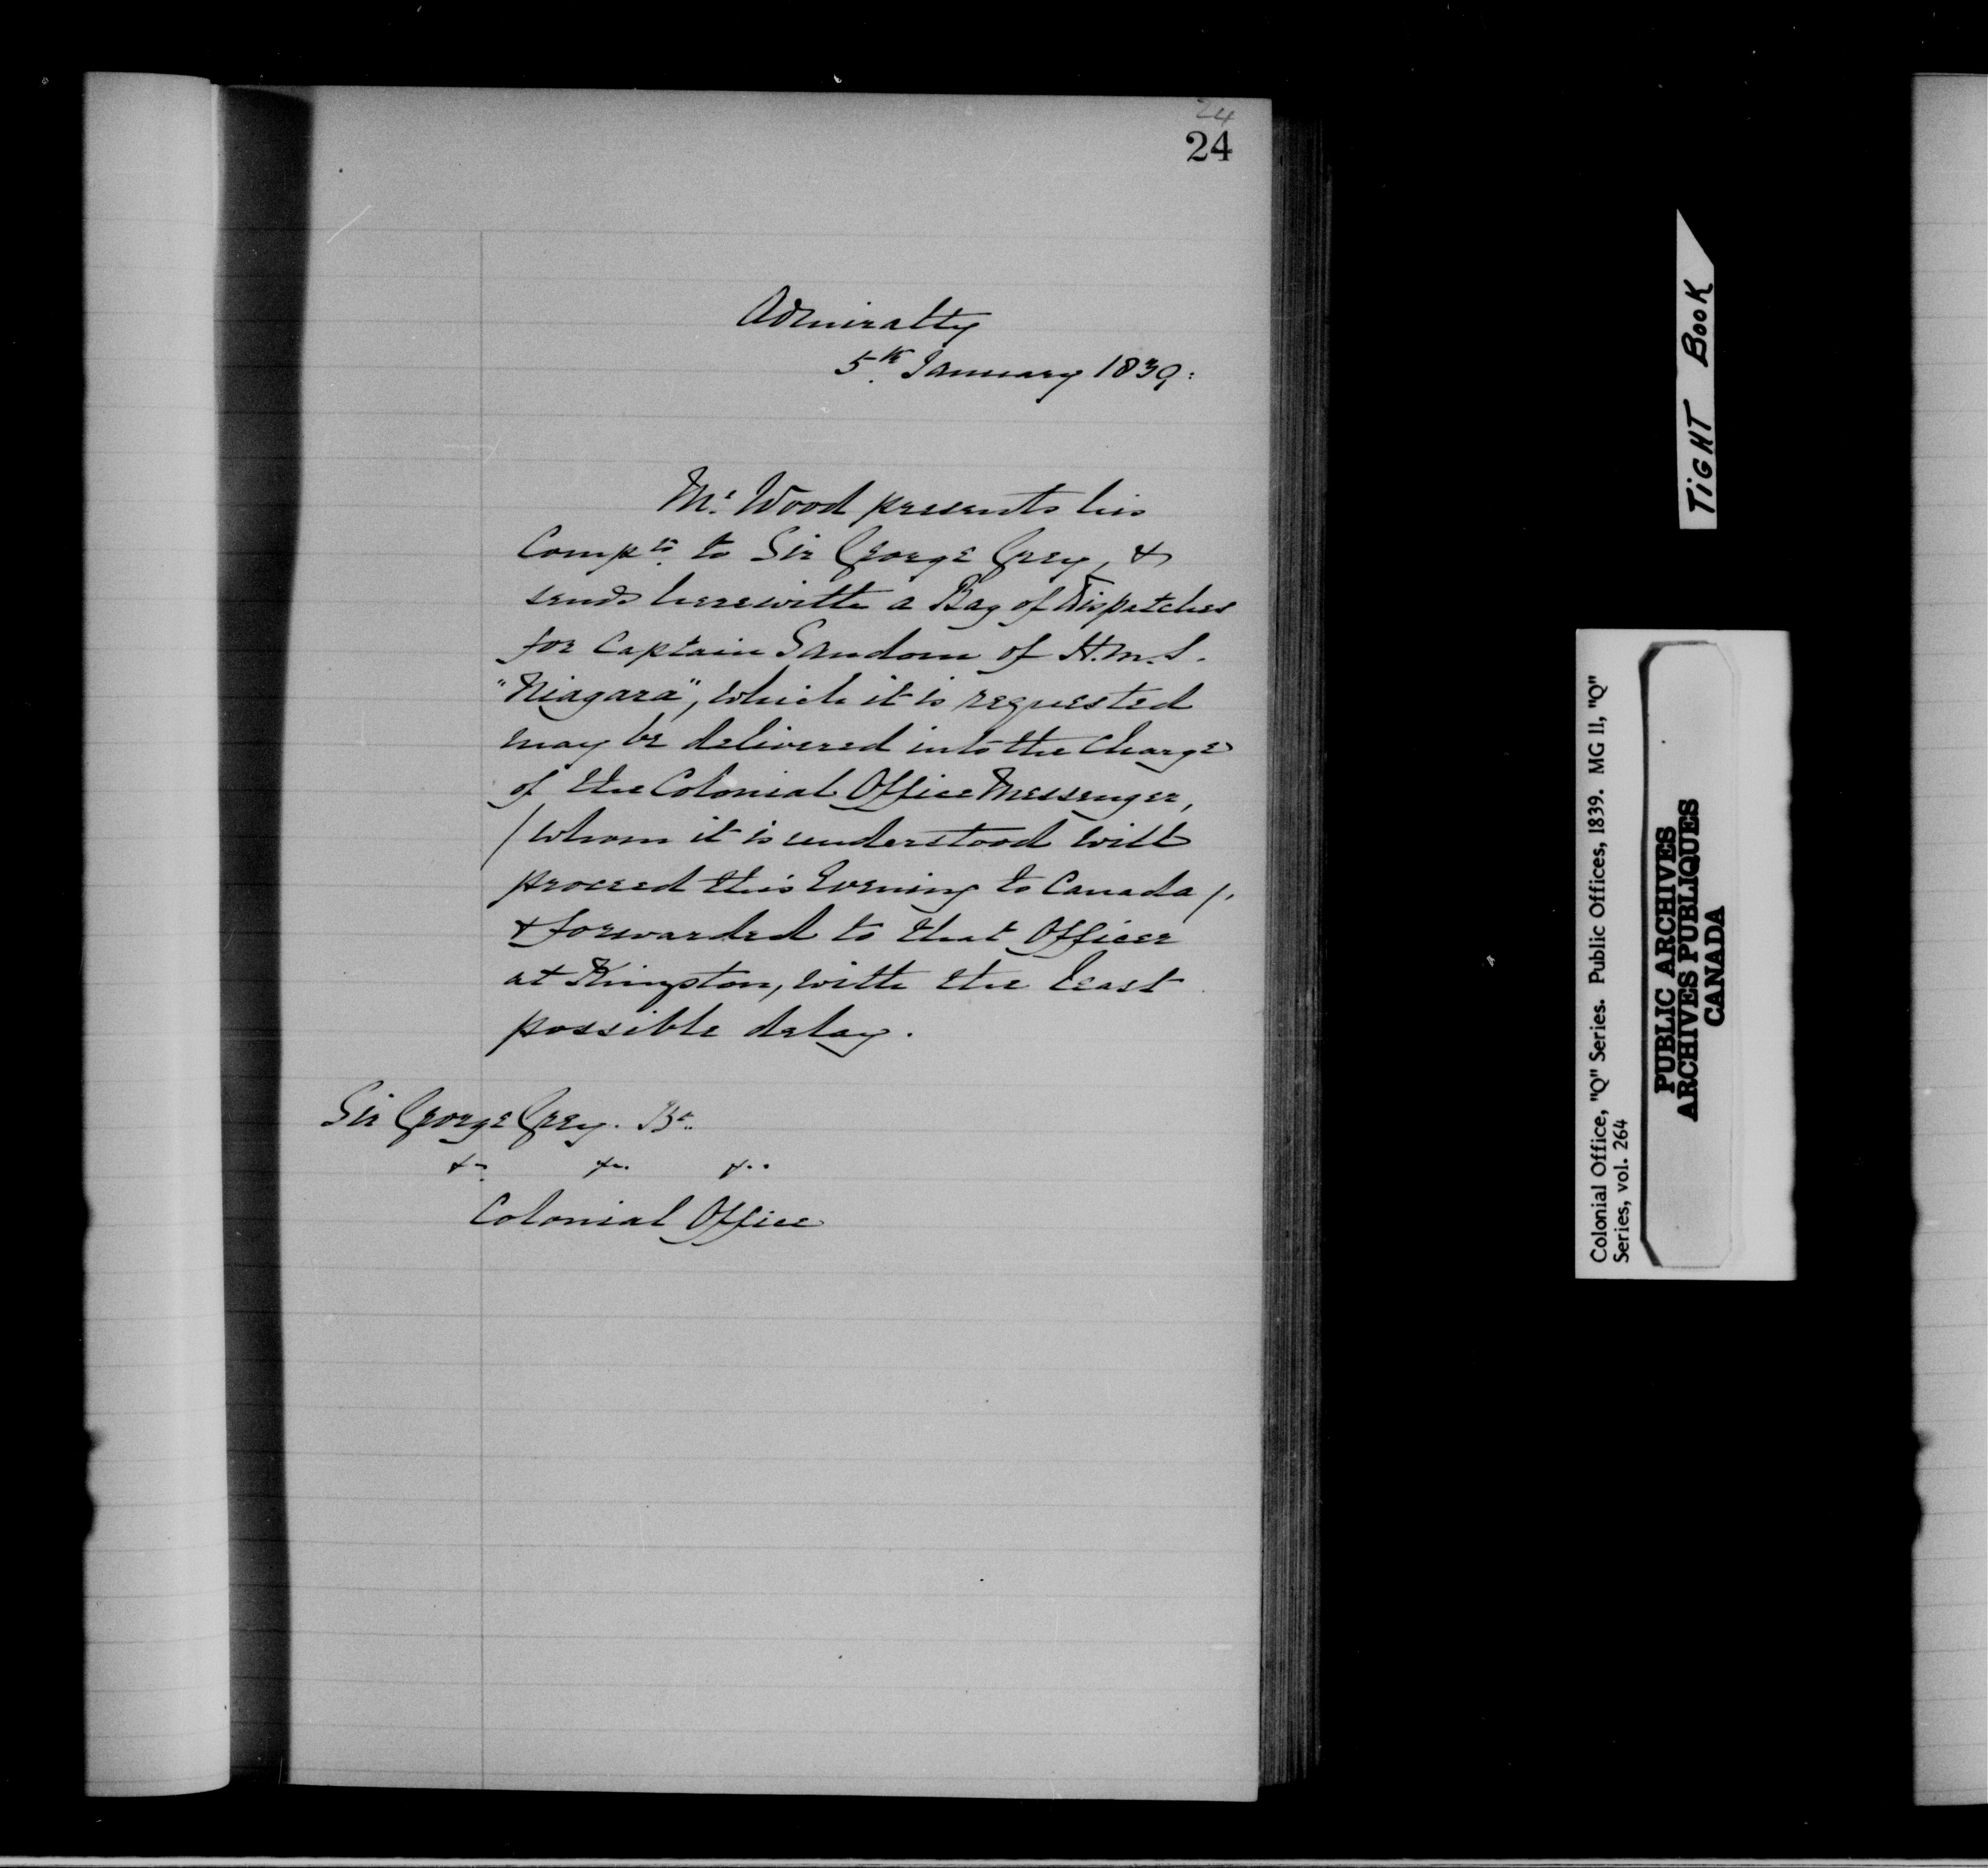 24
24
Admiralty
5th January 1839:
Mr. Wood presents his
Compts. to Sir George Grey, &
sends herewith a Bag of Dispatches
for Captain Sandom of H.M.S.
"Niagara", which it is requested
may be delivered into the Charge
of the Colonial Office Messenger,
/ whom it is understood will
proceed this Evening to Canada /,
& forwarded to that Officer
at Kingston, with the least
possible delay.
Sir George Grey. Bt.
&c. &c. &c.
Colonial Office
TIGHT BOOK
Colonial Office, "Q" Series. Public Offices, 1839. MG 11, "Q"
Series, vol. 264
PUBLIC ARCHIVES
ARCHIVES PUBLIQUES
CANADA